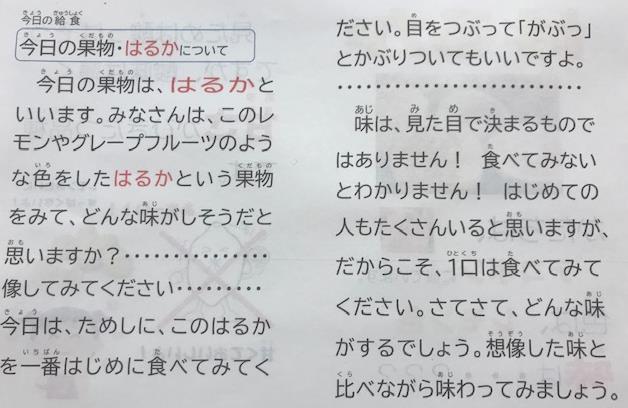 今日の給食
今日の果物・はるかについて
今日の果物は、はるかと
いいます。みなさんは、このレ
モンやグレープフルーツのよう
な色をしたはるかという果物
をみて、どんな味がしそうだと
思いますか?・・・・・・・・・・・・・・
像してみてください・・・・・・・・・
今日は、ためしに、このはるか
を一番はじめに食べてみてく
ださい。目をつぶって「がぶっ」
とかぶりついてもいいですよ。
・・・・・・・・・・・・・・・・・・・・・・・・・・
味は、見た目で決まるもので
はありません! 食べてみない
とわかりません! はじめての
人もたくさんいると思いますが、
だからこそ、1口は食べてみて
ください。さてさて、どんな味
がするでしょう。想像した味と
比べながら味わってみましょう。